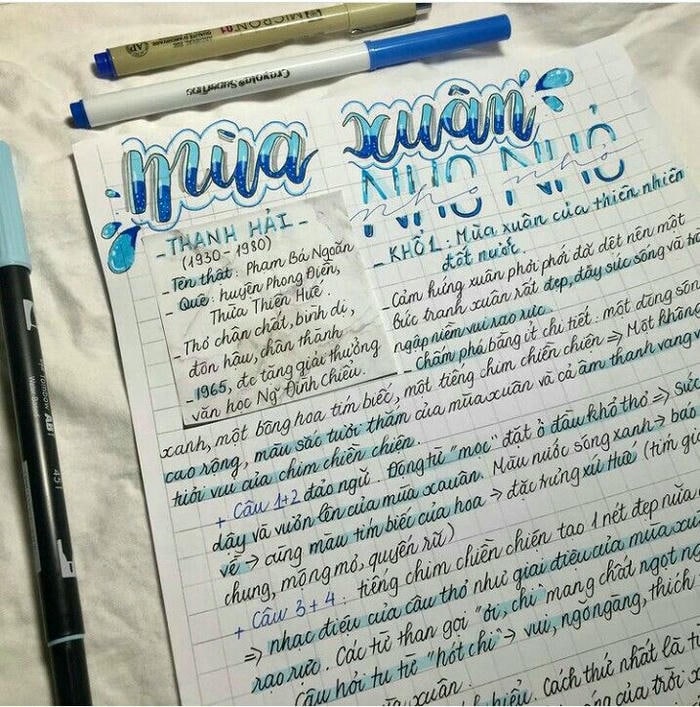 MICRON 01
Crayola SuperTips
Tombow ABT
451
mùa xuân
NHO NHỎ
nho nhỏ
- THANH HẢI -
(1930 - 1980)
- Tên thật: Phạm Bá Ngoãn
- Quê: huyện Phong Điền,
Thừa Thiên Huế.
- Thơ chân chất, bình dị,
đôn hậu, chân thành
- 1965, đc tặng giải thưởng
văn học Ng Đình Chiểu.
- KHỔ 1: Mùa xuân của thiên nhiên
đất nước.
- Cảm hứng xuân phơi phới đã dệt nên một
bức tranh xuân rất đẹp, đầy sức sống và
ngập niềm vui rạo rực.
- Chấm phá bằng ít chi tiết: một dòng sông
xanh, một bông hoa tím biếc, một tiếng chim chiền chiện ⇒ Một không
cao rộng, màu sắc tươi thắm của mùa xuân và cả âm thanh vang
tươi vui của chim chiền chiện.
+ Câu 1+2 đảo ngữ. Động từ "mọc" đặt ở đầu khổ thơ → sức
dậy và vươn lên của mùa xuân. Màu nước sông xanh →
về → cùng màu tím biếc của hoa → đặc trưng xứ Huế (tím
chung, mộng mơ, quyến rũ)
+ Câu 3+4: tiếng chim chiền chiện tạo 1 nét đẹp nữa
⇒ nhạc điệu của câu thơ như giai điệu của mùa
rạo rực. Các từ than gọi "ơi, chi" mang chất ngọt
Câu hỏi tu từ "hót chi" → vui, ngỡ ngàng, thích
xuân.
hiểu. Cách thứ nhất là
của trời